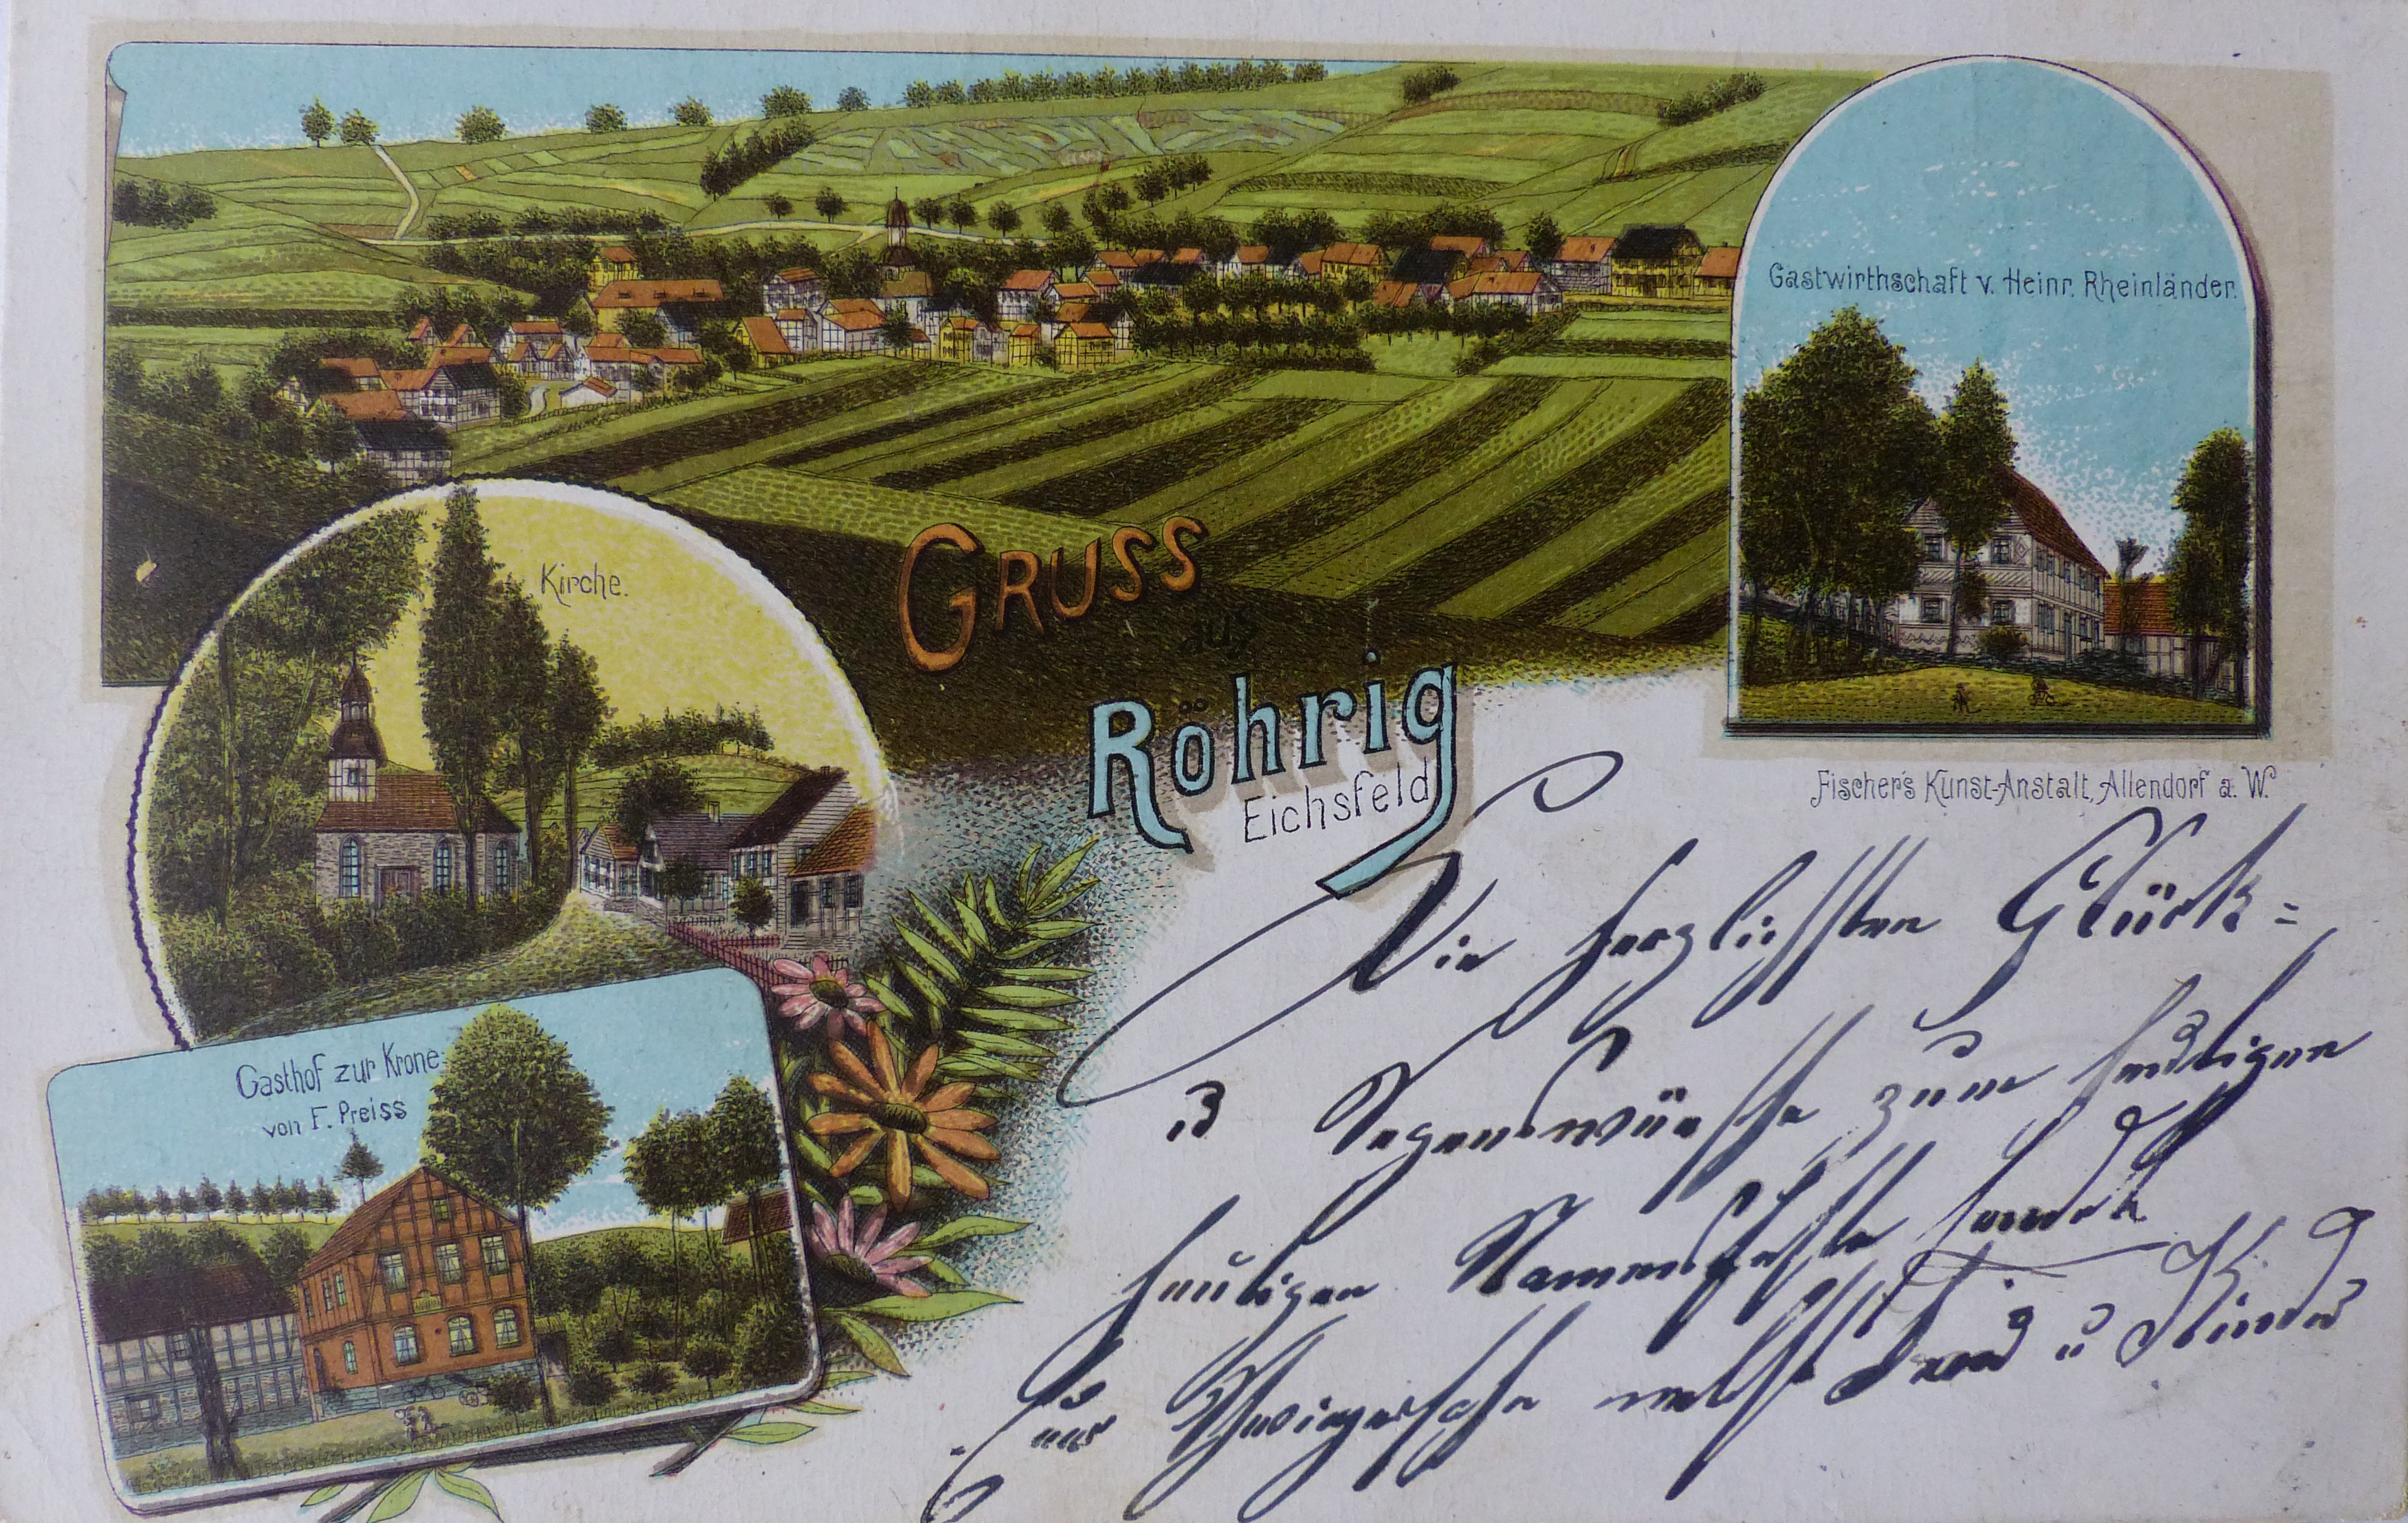 Gastwirthschaft v. Heinr. Rheinländer.
Kirche.
GRUSS
aus
Röhrig
Eichsfeld
Fischer's Kunst-Anstalt, Allendorf a. W.
Gasthof zur Krone
von F. Preiss
Die herzlichsten Glück=
Segenswünsche zum heutigen
heutigen Namensfeste sendet
Schwiegersohn nebst Frau u Kinder